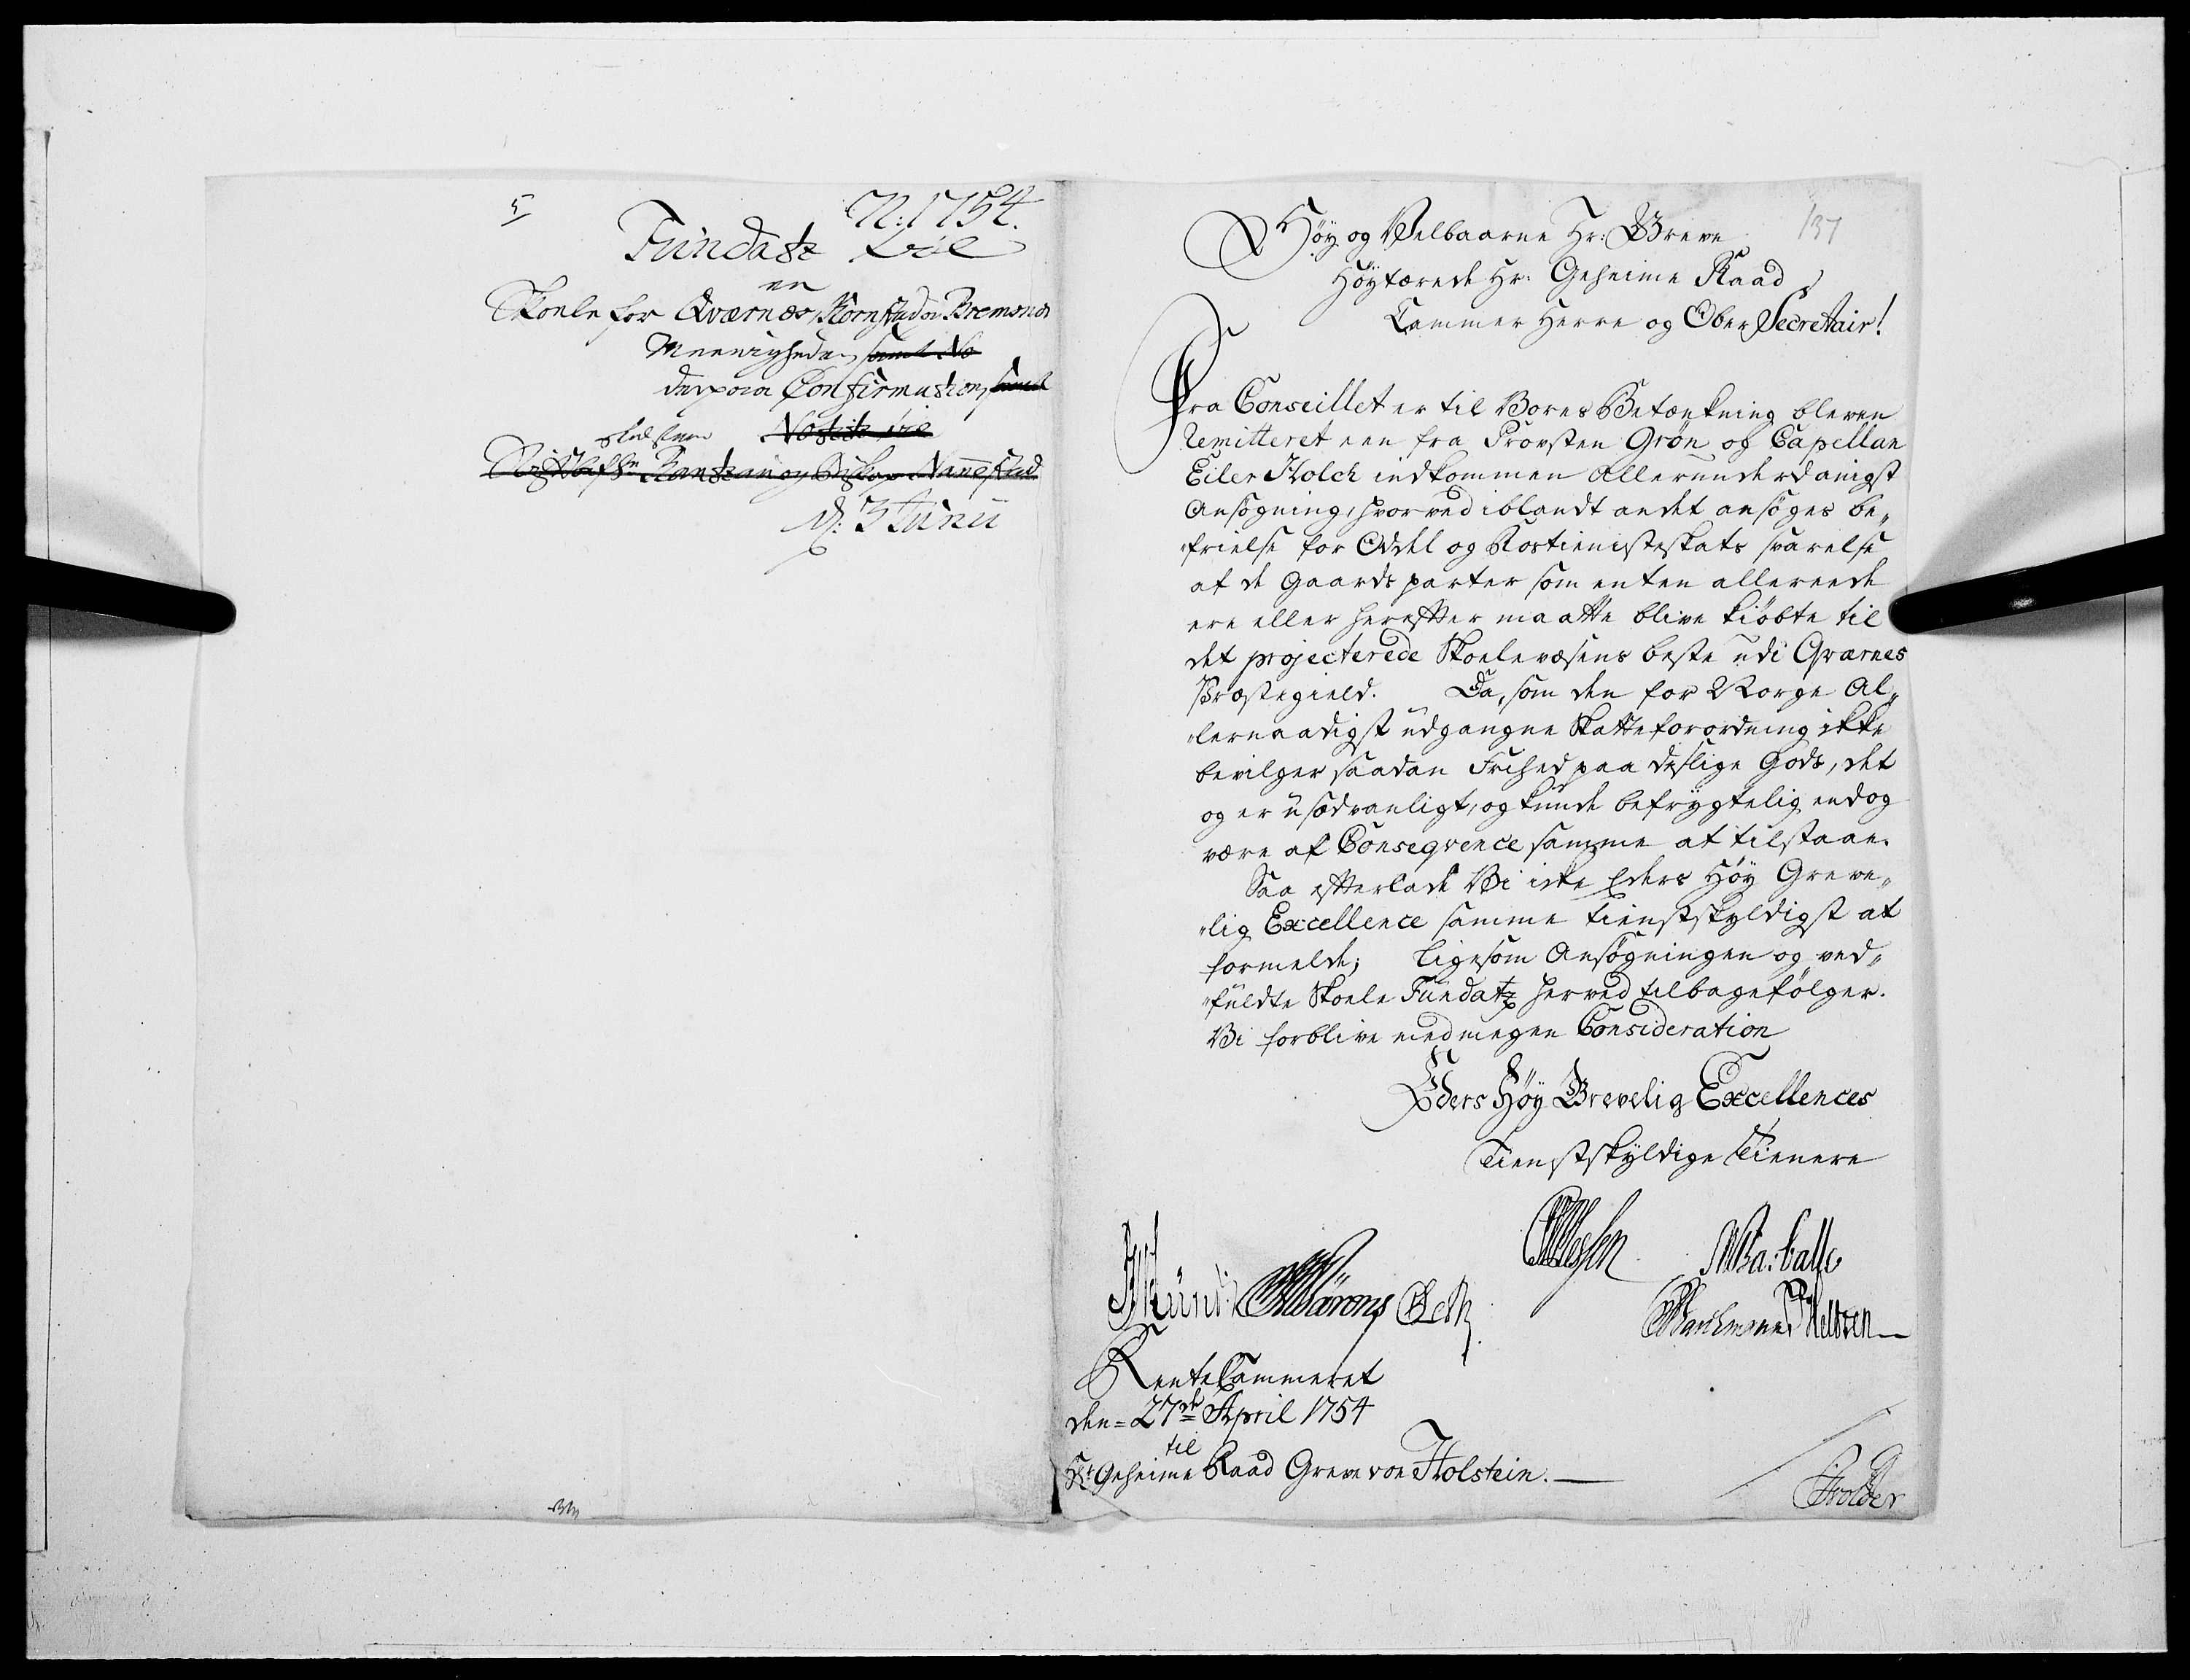 5/
N: 1754.
Fundatz til
en
Skoele for Qværnes, Kornstad og Bremsnes
Meenigheder, samt No
derpaa Confirmation, samt
Notitz til
Stiftbefhr. Rantzau og Biskop Nannestad
d: 7 Junii
137
Høy og Velbaarne Hr: Greve
Høytærede Hr: Geheime Raad
Cammer Herre og Ober Secretair!
Fra Conseillet er til Vores Betænkning bleven
remitteret een fra Provsten Grøn og Capellan
Eiler Holck indkommen allerunderdanigst
Ansøgning, hvorved iblandt andet ansøges be„
„frielse for Oddel og Rostienisteskats svarelse
af de Gaardsparter som enten allereede
ere eller herefter maatte blive kiøbte til
det projecterede Skoelevæsens beste udi Qvarnes
Præstegield. Da, som den for Norge Al„
„lernaadigst udgangne Skatteforordning ikke
bevilger saadan Frihed paa deslige Gods, det
og er usædvanligt, og kunde befrygtelig endog
være af Conseqvence samme at tilstaae.
Saa efterlade Vi icke Eders Høy Greve„
„lig Excellence samme tienstskyldigst at
formelde; ligesom Ansøgningen og ved„
„fuldte Skoele Fundatz herved tilbagefølger.
Vi forblive med megen Consideration
Eders Høy Grevelig Excellences
Tienstskyldige Tienere
Holstein
RenteCammeret
den 27de April 1754
til
Hr Geheime Raad Greve von Holstein.